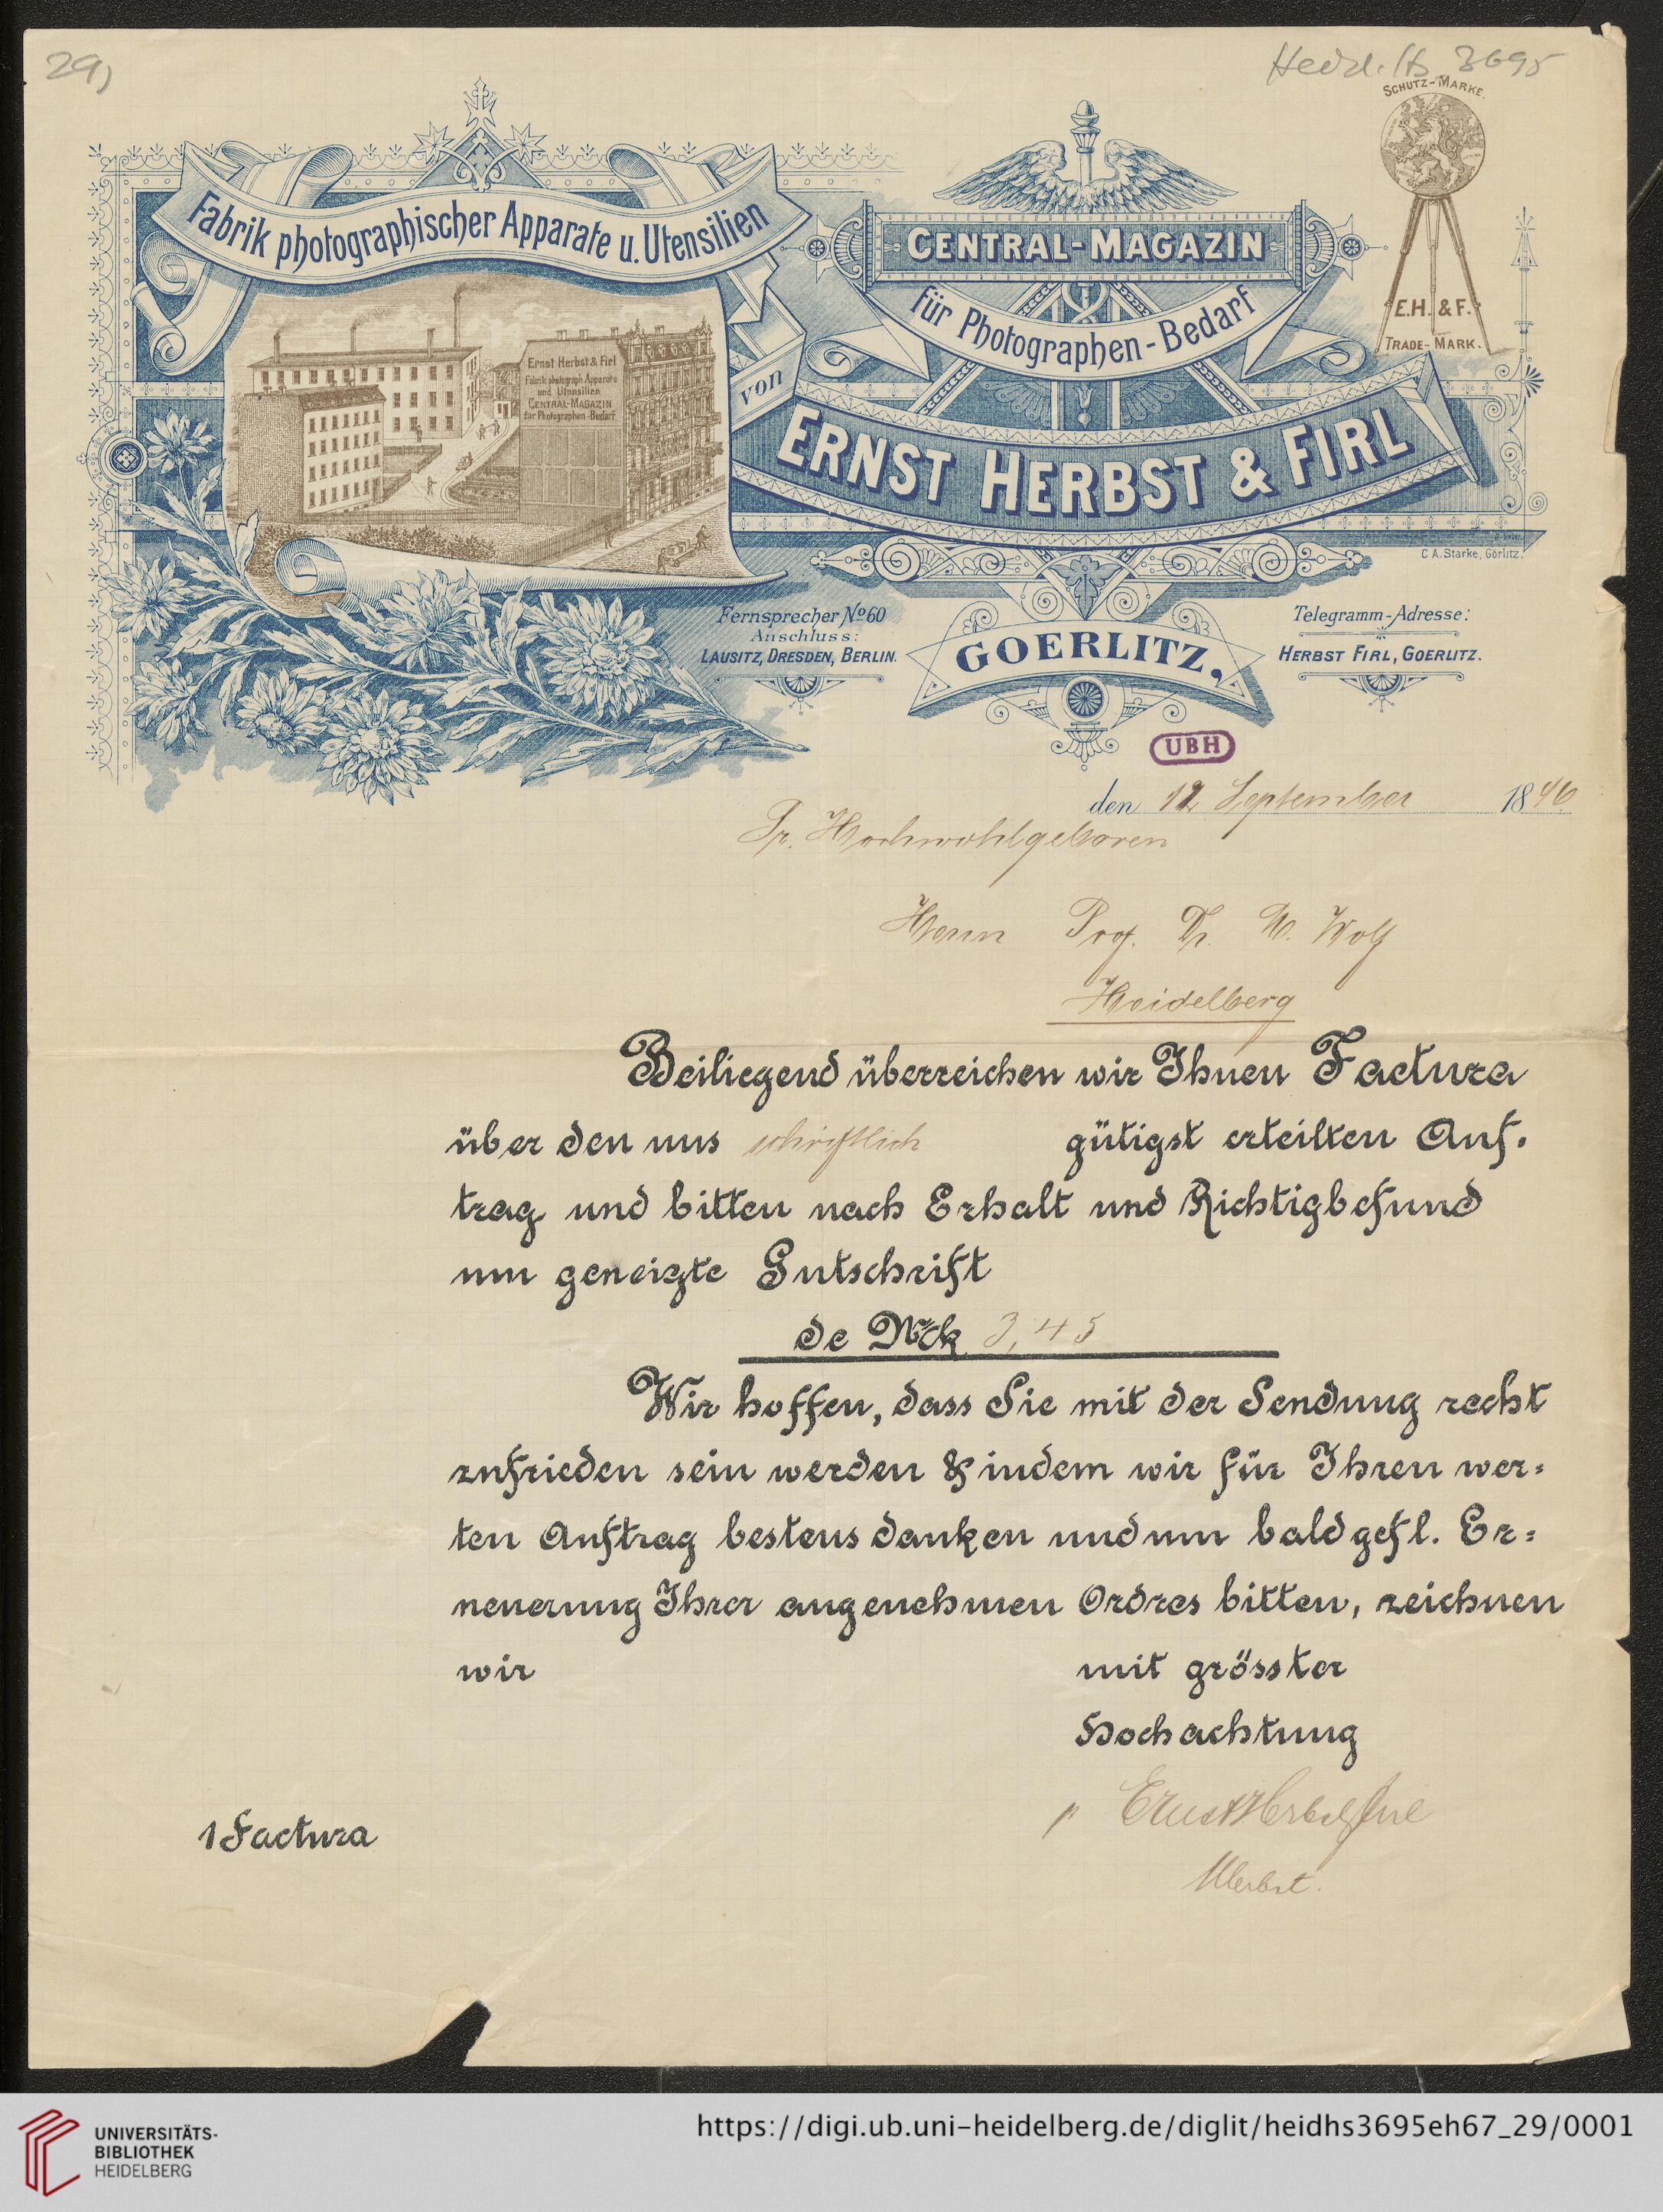 29)
Heid. Hs 3695
SCHUTZ-MARKE.
E.H. & F.
TRADE-MARK.
Fabrik photographischer Apparate u. Utensilien
CENTRAL-MAGAZIN
für Photographen-Bedarf
von
ERNST HERBST & FIRL
Ernst Herbst & Firl
Fabrik photograph. Apparate
und Utensilien
CENTRAL-MAGAZIN
für Photographen-Bedarf
C A. Starke, Görlitz.
Fernsprecher No 60
Anschluss:
LAUSITZ, DRESDEN, BERLIN.
GOERLITZ,
Telegramm-Adresse:
HERBST FIRL, GOERLITZ.
UBH
den 12 September 1896
Sr. Hochwohlgeboren
Herrn Prof. Dr. M. Wolf
Heidelberg
Beiliegend überreichen wir Ihnen Factura
über den uns schriftlich gütigst erteilten Auf-
trag und bitten nach Erhalt und Richtigbefund
um geneigte Gutschrift
de Mck 3,45
Wir hoffen, dass Sie mit der Sendung recht
zufrieden sein werden & indem wir für Ihren wer=
ten Auftrag bestens danken und um bald gefl. Er=
neuerung Ihrer angenehmen Ordres bitten, zeichnen
wir mit grösster
Hochachtung
Ernst Herbst & Firl
Herbst.
1 Factura
UNIVERSITÄTS-
BIBLIOTHEK
HEIDELBERG
https://digi.ub.uni-heidelberg.de/diglit/heidhs3695eh67_29/0001